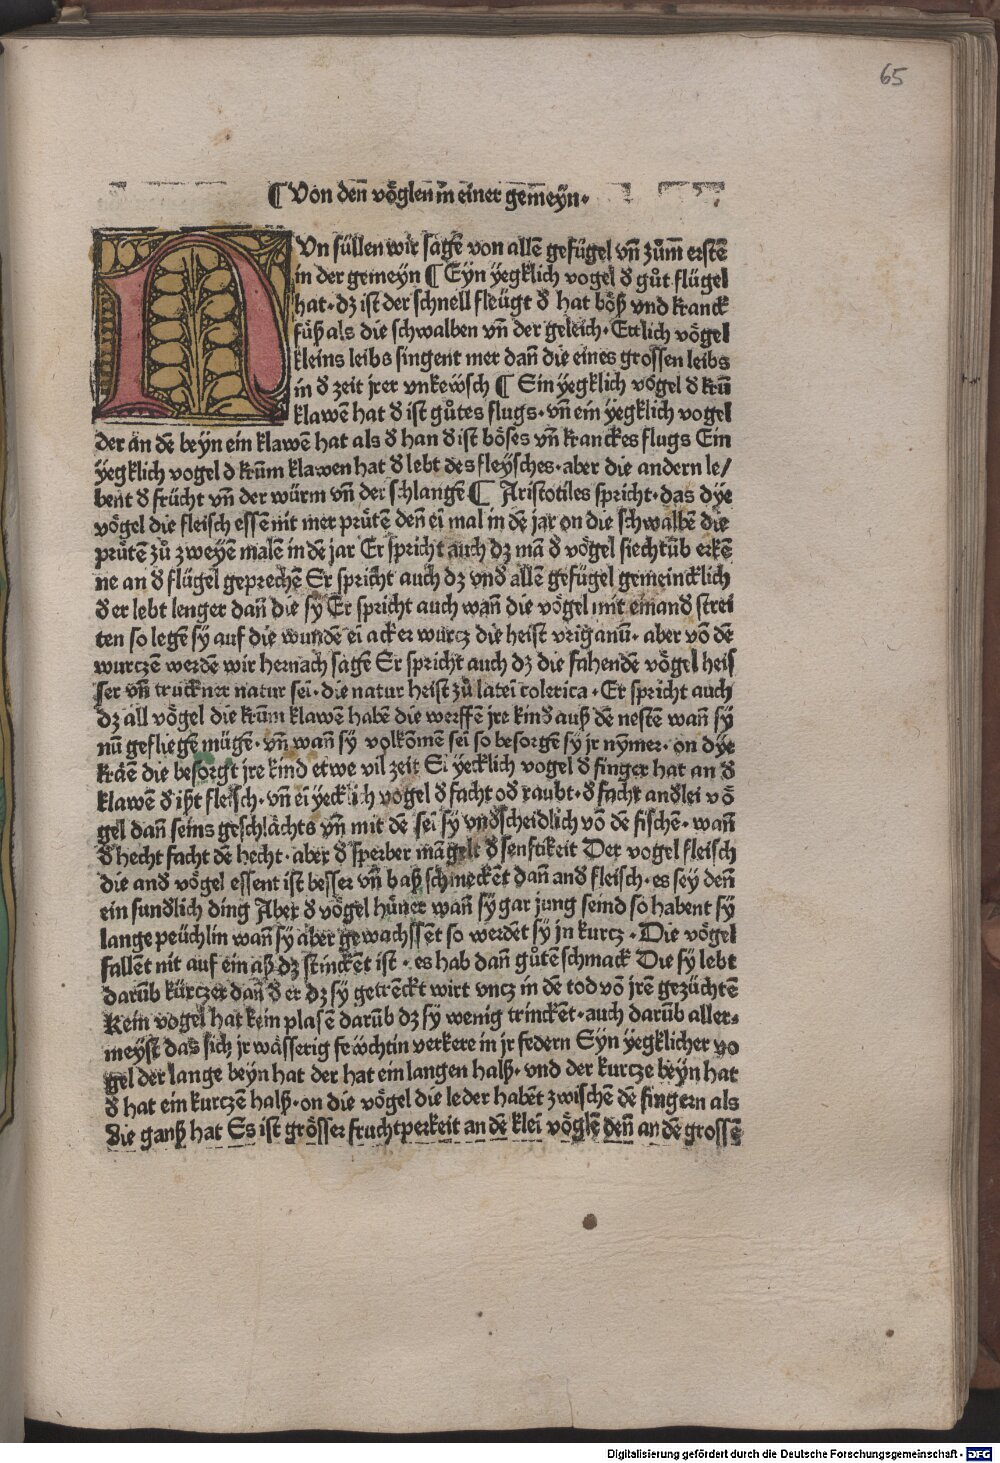 65
¶ Von den̄ vöglen in̄ einer gemeyn·
NUn süllen wir sagē von allē gefügel vn̄ zům̄ erstē
in der gemeyn ¶ Eyn yegklich vogel ď gůt flügel
hat· dz ist der schnell fleügt ď hat böß vnd kranck
füß als die schwalben vn̄ der geleich· Ettlich vögel
kleins leibs singent mer dan̄ die eines grossen leibs
in ď zeit jrer vnkewsch ¶ Ein yegklich vogel ď krū
klawē hat ď ist gůtes flugs· vn̄ ein yegklich vogel
der an dē beyn ein klawē hat als ď han ď ist böses vn̄ kranckes flugs Ein
yegklich vogel ď krūm klawen hat ď lebt des fleysches· aber die andern le/
bent ď frücht vn̄ der würm vn̄ der schlangē ¶ Aristotiles spricht· das dye
vögel die fleisch essē nit mer prütē den̄ ei mal in dē jar on die schwalbē die
prütē zů zweyē malē in dē jar Er spricht auch dz mā ď vögel siechtūb erkē
ne an ď flügel geprechē Er spricht auch dz vnď allē gefügel gemeincklich
ď er lebt lenger dan̄ die sy Er spricht auch wan̄ die vögel mit einanď strei
ten so legē sy auf die wundē ei acker wurcz die heist vriganū· aber vō dē
wurczē werdē wir hernach sagē Er spricht auch dz die fahendē vögel heis
ser vn̄ truckner natur sei· die natur heist zů latei colerica· Er spricht auch
dz all vögel die krūm klawē habē die werffē jre kinď auß dē nestē wan̄ sy
nū gefliegē mügē· vn̄ wan̄ sy volkōmē sei so besorgē sy jr nymer· on dye
kräē die besorgt jre kind etwe vil zeit Ei yecklich vogel ď finger hat an ď
klawē ď ißt fleisch· vn̄ ei yecklich vogel ď facht oď raubt· ď facht anďlei vö
gel dan̄ seins geschlächts vn̄ mit dē sei sy vnďscheidlich vō dē fischē· wan̄
ď hecht facht dē hecht· aber ď sperber māgelt ď senftikeit Der vogel fleisch
die anď vögel essent ist besser vn̄ baß schmeckēt dan̄ anď fleisch· es sey den̄
ein sundlich ding Aber ď vögel hüner wan̄ sy gar jung seind so habent sy
lange peüchlin wan̄ sy aber gewachssēt so werdēt sy jn kurcz· Die vögel
fallēt nit auf ein aß dz stinckēt ist· es hab dan̄ gůtē schmack Die sy lebt
darūb kürczer dan̄ ď er dz sy getrēckt wirt vncz in dē tod vō jrē gezüchtē
Kein vogel hat kein plasē darūb dz sy wenig trinckēt· auch darūb aller-
meyst das sich jr wässerig fewchtin verkere in jr federn Eyn yegklicher vo
gel der lange beyn hat der hat ein langen halß· vnd der kurcze beyn hat
ď hat ein kurczē halß· on die vögel die leder habēt zwischē dē fingern als
die ganß hat Es ist grösser fruchtperkeit an dē klei vöglē den̄ an dē grossē
Digitalisierung gefördert durch die Deutsche Forschungsgemeinschaft - DFG